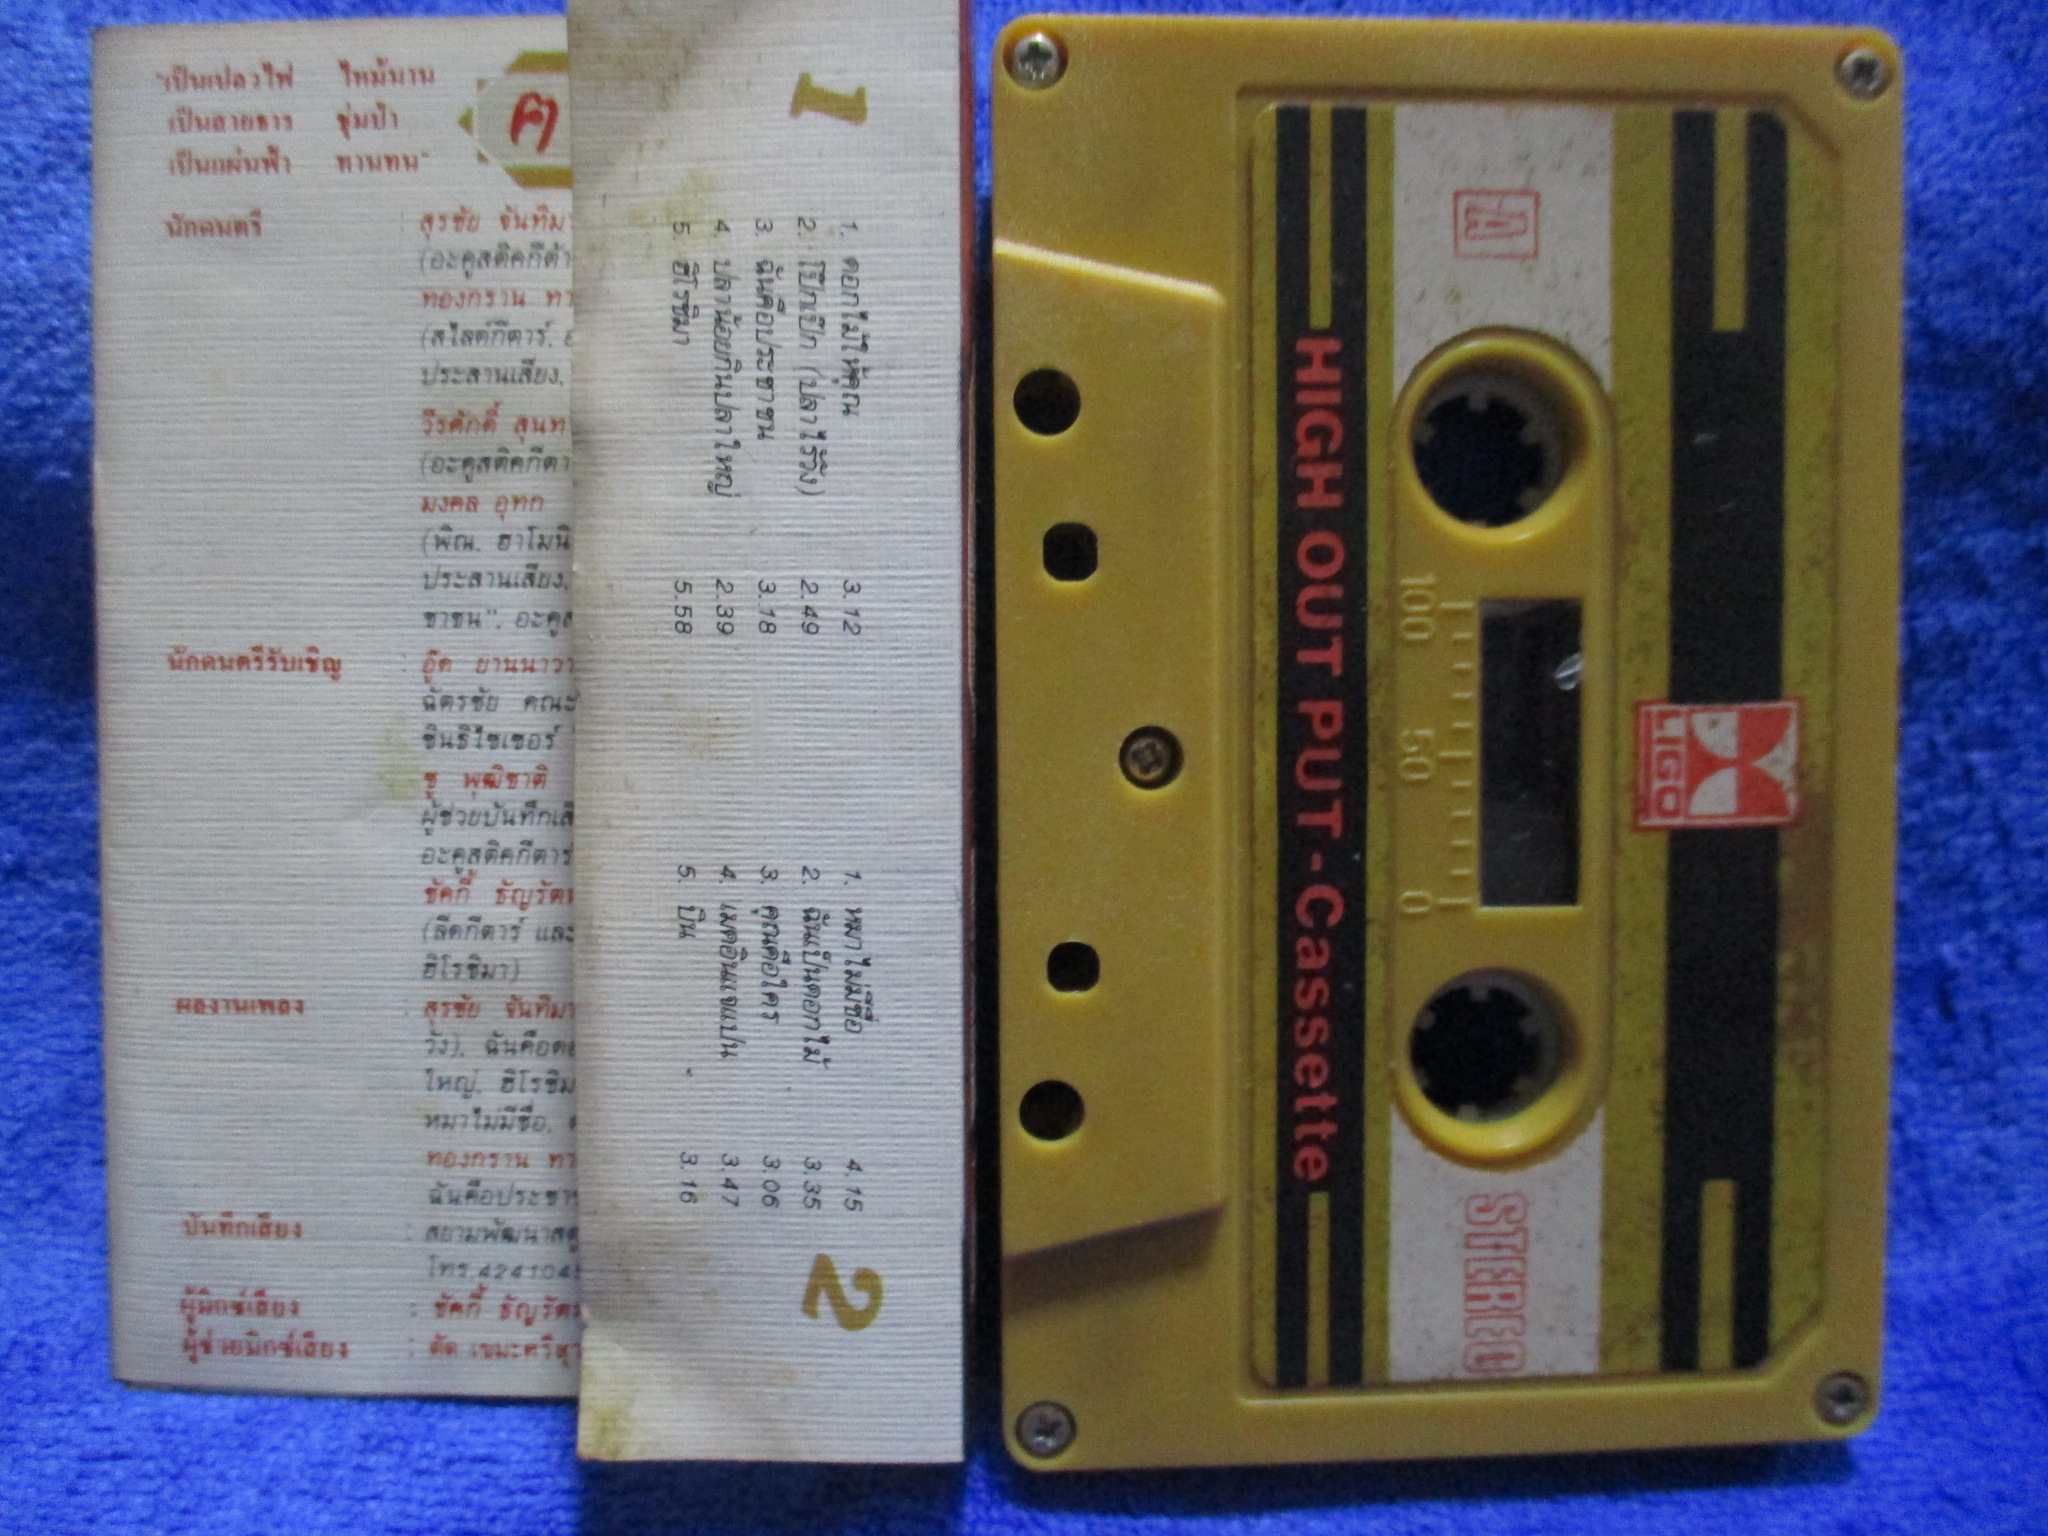 "เป็นเปลวไฟ ไหม้นาน
เป็นสายธาร ชุ่มป่า
เป็นแผ่นฟ้า ทานทน"
ค
นักดนตรี : สุรชัย จันทิมา
(อะคูสติคกีต้า
ทองกราน ทา
(สไลด์กีตาร์,
ประสานเสียง,
วีรศักดิ์ สุนท
(อะคูสติคกีตา
มงคล อุทก
(พิณ, ฮาโมนิ
ประสานเสียง,
ชาชน", อะคูส
นักดนตรีรับเชิญ : อู๊ด ยานนาวา
ฉัตรชัย คณะ
ซินธิไซเซอร์
ชู พุฒิชาติ
ผู้ช่วยบันทึกเสี
อะคูสติคกีตาร์
ชัคกี้ ธัญรัตน
(ลีดกีตาร์ และ
ฮิโรชิมา)
ผลงานเพลง : สุรชัย จันทิมา
วัง), ฉันคือดอ
ใหญ่, ฮิโรชิม
หมาไม่มีชื่อ,
ทองกราน ทา
ฉันคือประชา
บันทึกเสียง : สยามพัฒนาสตู
โทร.424104
ผู้มิกซ์เสียง : ชัคกี้ ธัญรัตน
ผู้ช่วยมิกซ์เสียง :
1
1. ดอกไม้ให้คุณ 3.12
2. โป๊กเป๊ก (ปลาไร้วัง) 2.49
3. ฉันคือประชาชน 3.18
4. ปลาน้อยกินปลาใหญ่ 2.39
5. ฮิโรชิมา 5.58
1. หมาไม่มีชื่อ 4.15
2. ฉันเป็นดอกไม้ 3.35
3. คุณคือใคร 3.06
4. เมดอินแจแปน 3.47
5. บิน 3.16
2
A
HIGH OUT PUT-Cassette
100 50 0
LIGO
STEREO